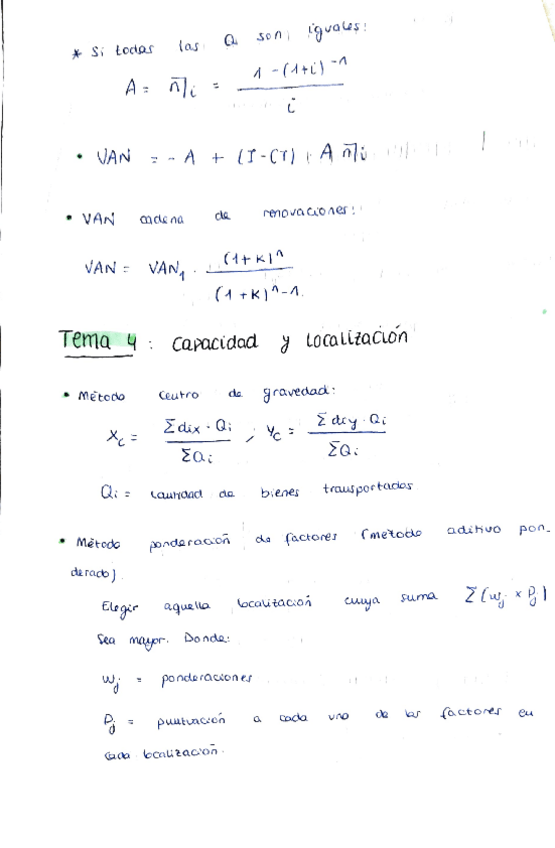 * Si todas las Q son iguales:
A = n̅|i = 1 - (1+i)^-n / i
• VAN = - A + (I - CT) · A n̅|i
• VAN cadena de renovaciones:
VAN = VAN1 · (1+K)^n / (1+K)^n - 1
Tema 4: Capacidad y localización
• Método centro de gravedad:
Xc = Σdix · Qi / ΣQi ; Yc = Σdcy · Qi / ΣQi
Qi = cantidad de bienes transportados
• Método ponderación de factores (metodo aditivo pon-
derado)
Elegir aquella localización cuya suma Σ(wj × Pj)
sea mayor. Donde:
wj = ponderaciones
Pj = puntuación a cada uno de los factores en
cada localización.